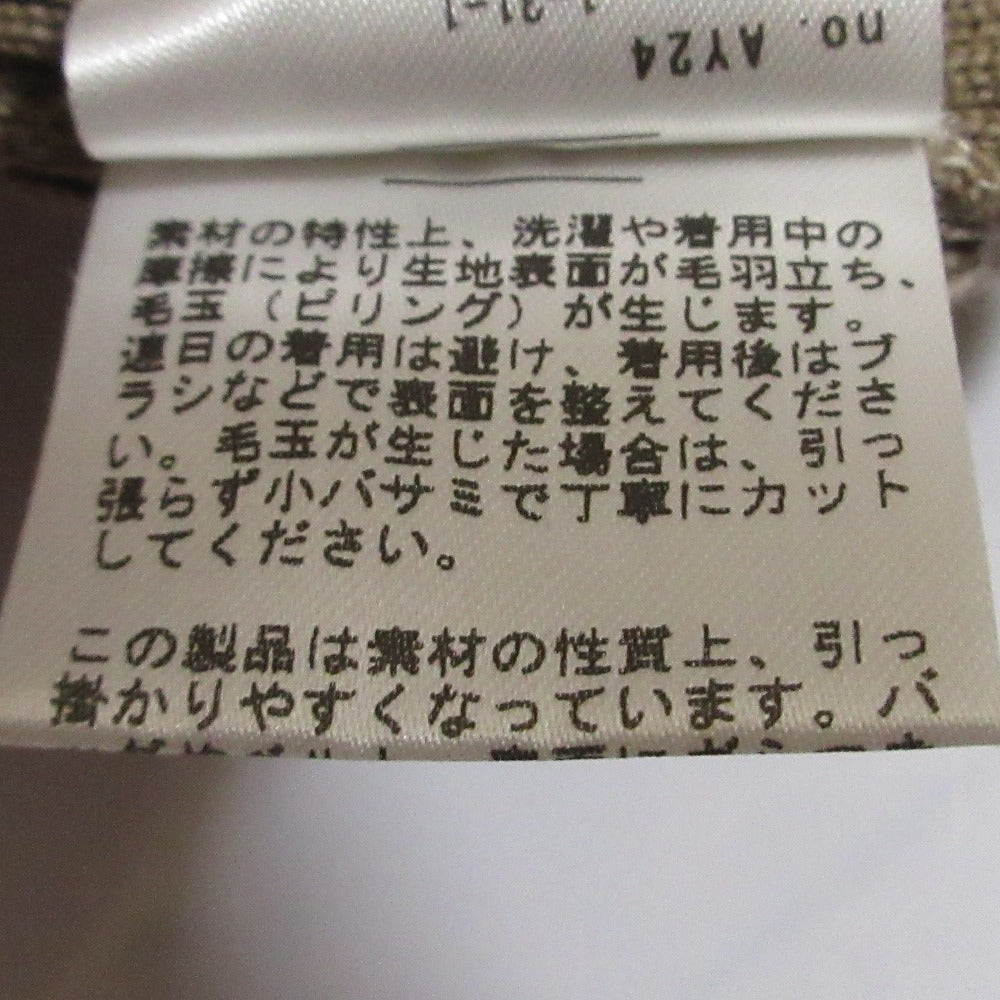 no. AY24
素材の特性上、洗濯や着用中の
摩擦により生地表面が毛羽立ち、
毛玉（ピリング）が生じます。
連日の着用は避け、着用後はブ
ラシなどで表面を整えてくださ
い。毛玉が生じた場合は、引っ
張らず小バサミで丁寧にカット
してください。
この製品は素材の性質上、引っ
掛かりやすくなっています。バ